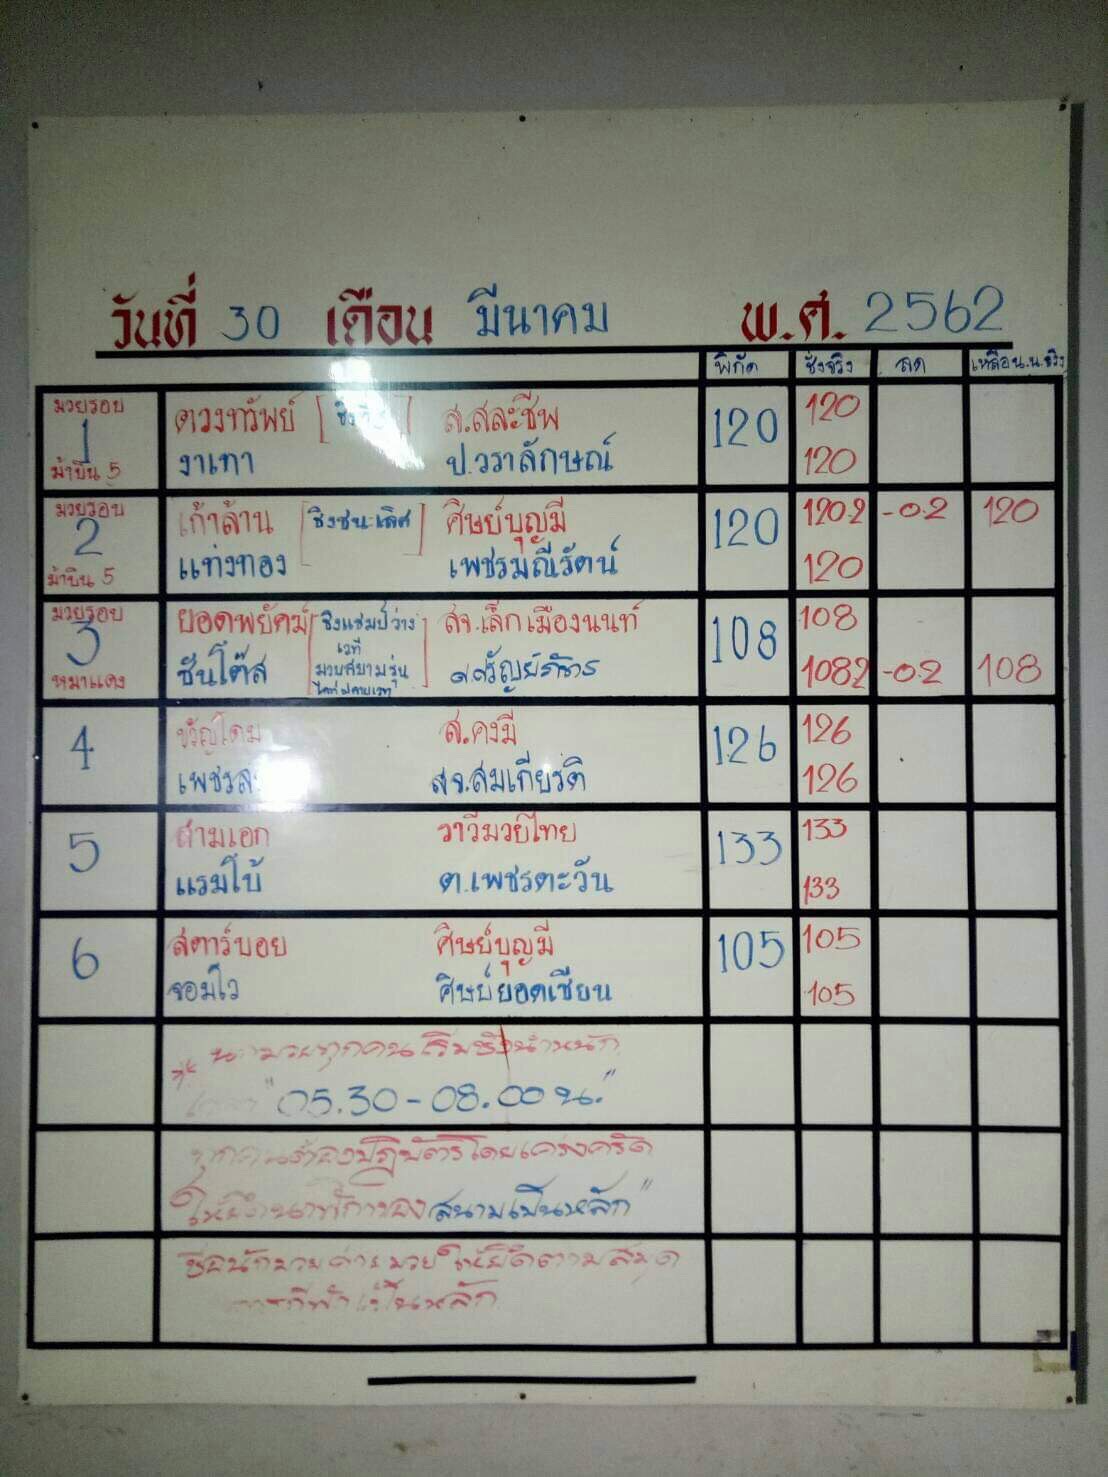 วันที่ 30 เดือน มีนาคม พ.ศ. 2562
พิกัด ชั่งจริง ลด เหลือน.น.จริง
มวยรอบ 1 ม้าบิน 5
ดวงทรัพย์ ส.สละชีพ 120 120
งาเทา ป.วราลักษณ์ 120
มวยรอบ 2 ม้าบิน 5
เก้าล้าน [ชิงชนะเลิศ] ศิษย์บุญมี 120 120.2 -0.2 120
แท่งทอง เพชรมณีรัตน์ 120
มวยรอบ 3 หมาแดง
ยอดพยัคฆ์ สจ.เล็กเมืองนนท์ 108 108
ชิงแชมป์ว่าง
เวที
มวยสยามรุ่น
ซันโต๊ส 108.2 -0.2 108
4 ขวัญโดม ส.คงมี 126 126
สจ.สมเกียรติ 126
5 สามเอก ราวีมวยไทย 133 133
แรมโบ้ ต.เพชรตะวัน 133
6 สตาร์บอย ศิษย์บุญมี 105 105
จอมไว ศิษย์ยอดเซียน 105
* นักมวยทุกคนเริ่มชั่งน้ำหนัก
"05.30-08.00 น."
ทุกคนต้องปฏิบัติโดยเคร่งครัด
สนามเป็นหลัก"
ชื่อนักมวยค่ายมวยให้ยึดตามสมุด
การกีฬาเป็นหลัก